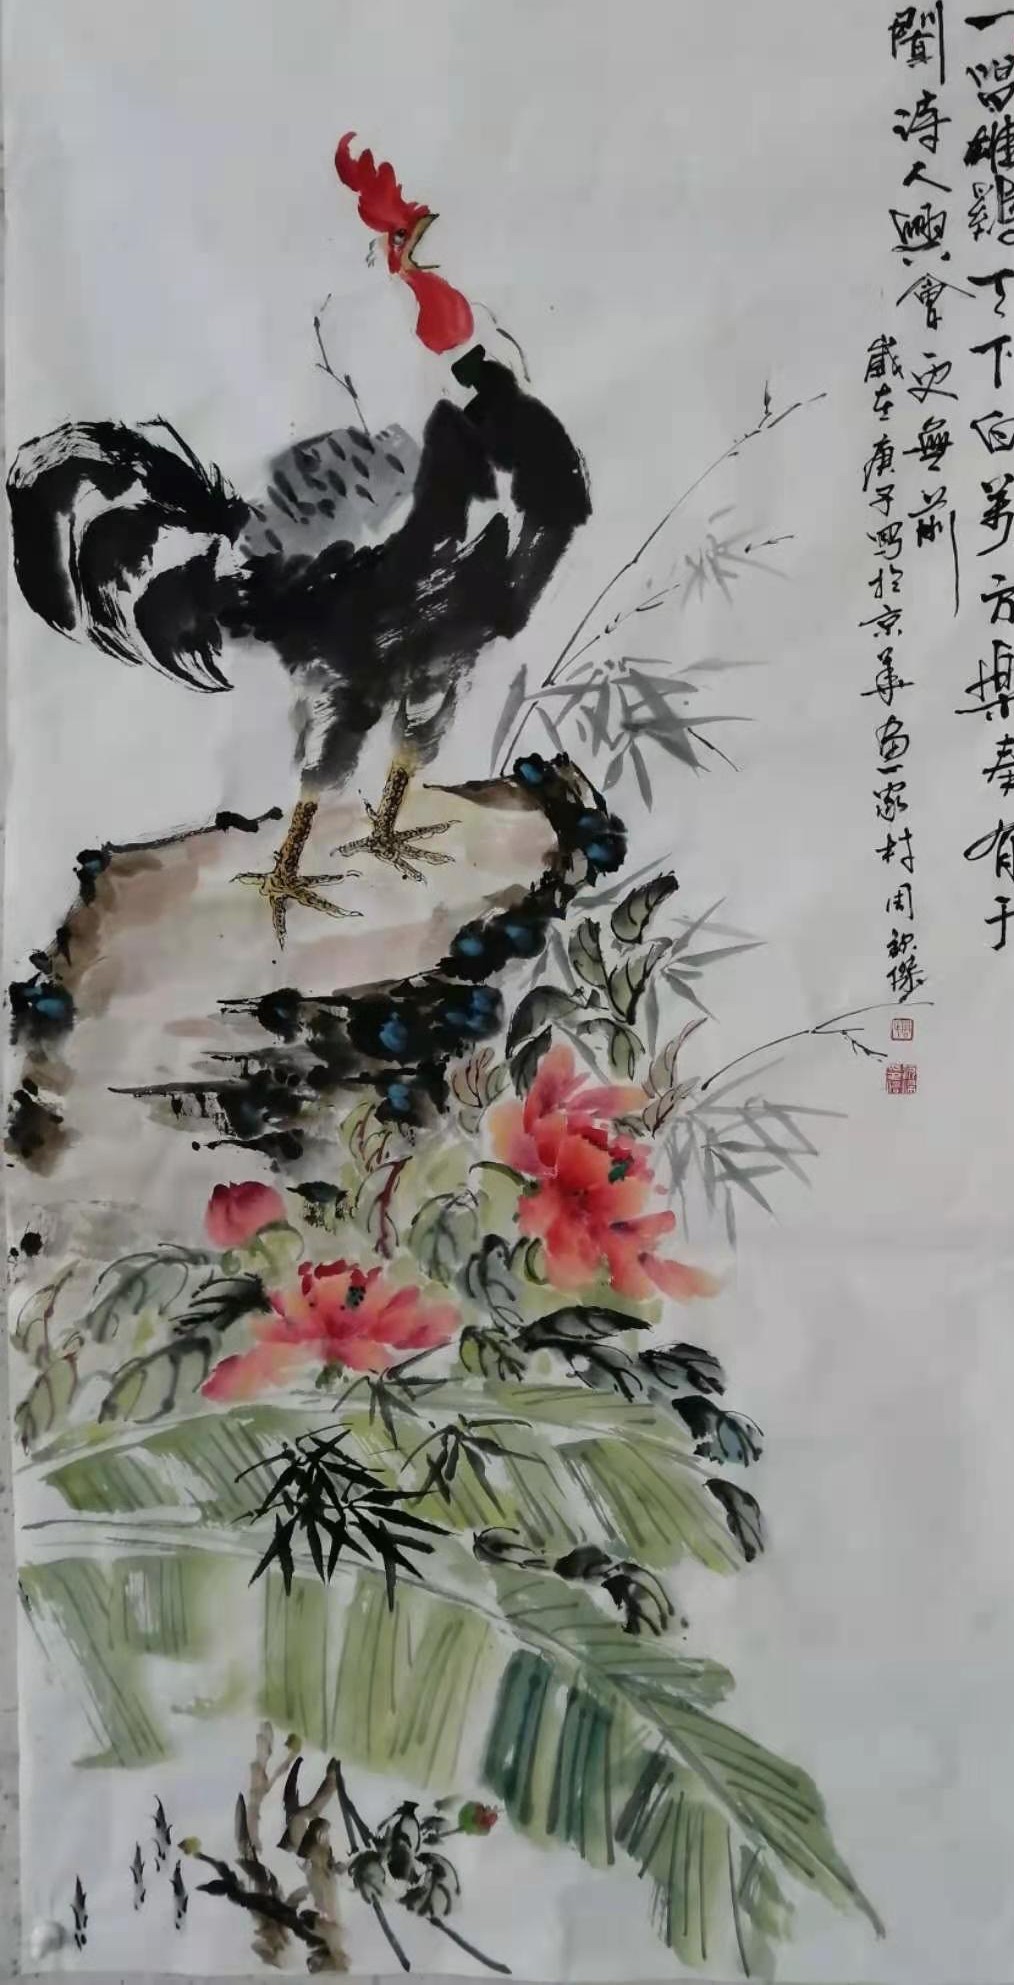 一唱雄鷄天下白萬方樂奏有于
闐詩人興會更無前
歲在庚子寫於京華畫家村周欽傑